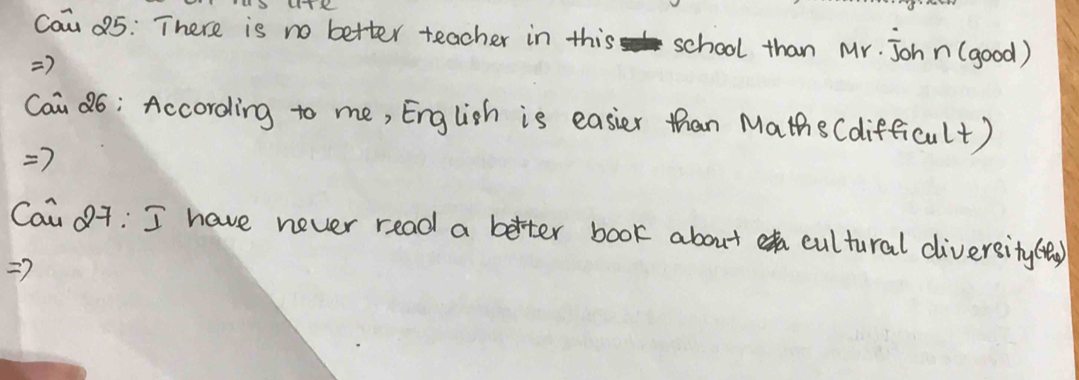 his life
Câu 25: There is no better teacher in this school than Mr. John (good)
=>
Câu 26: According to me, English is easier than Maths (difficult)
=>
Câu 27: I have never read a better book about cultural diversity (the)
=>